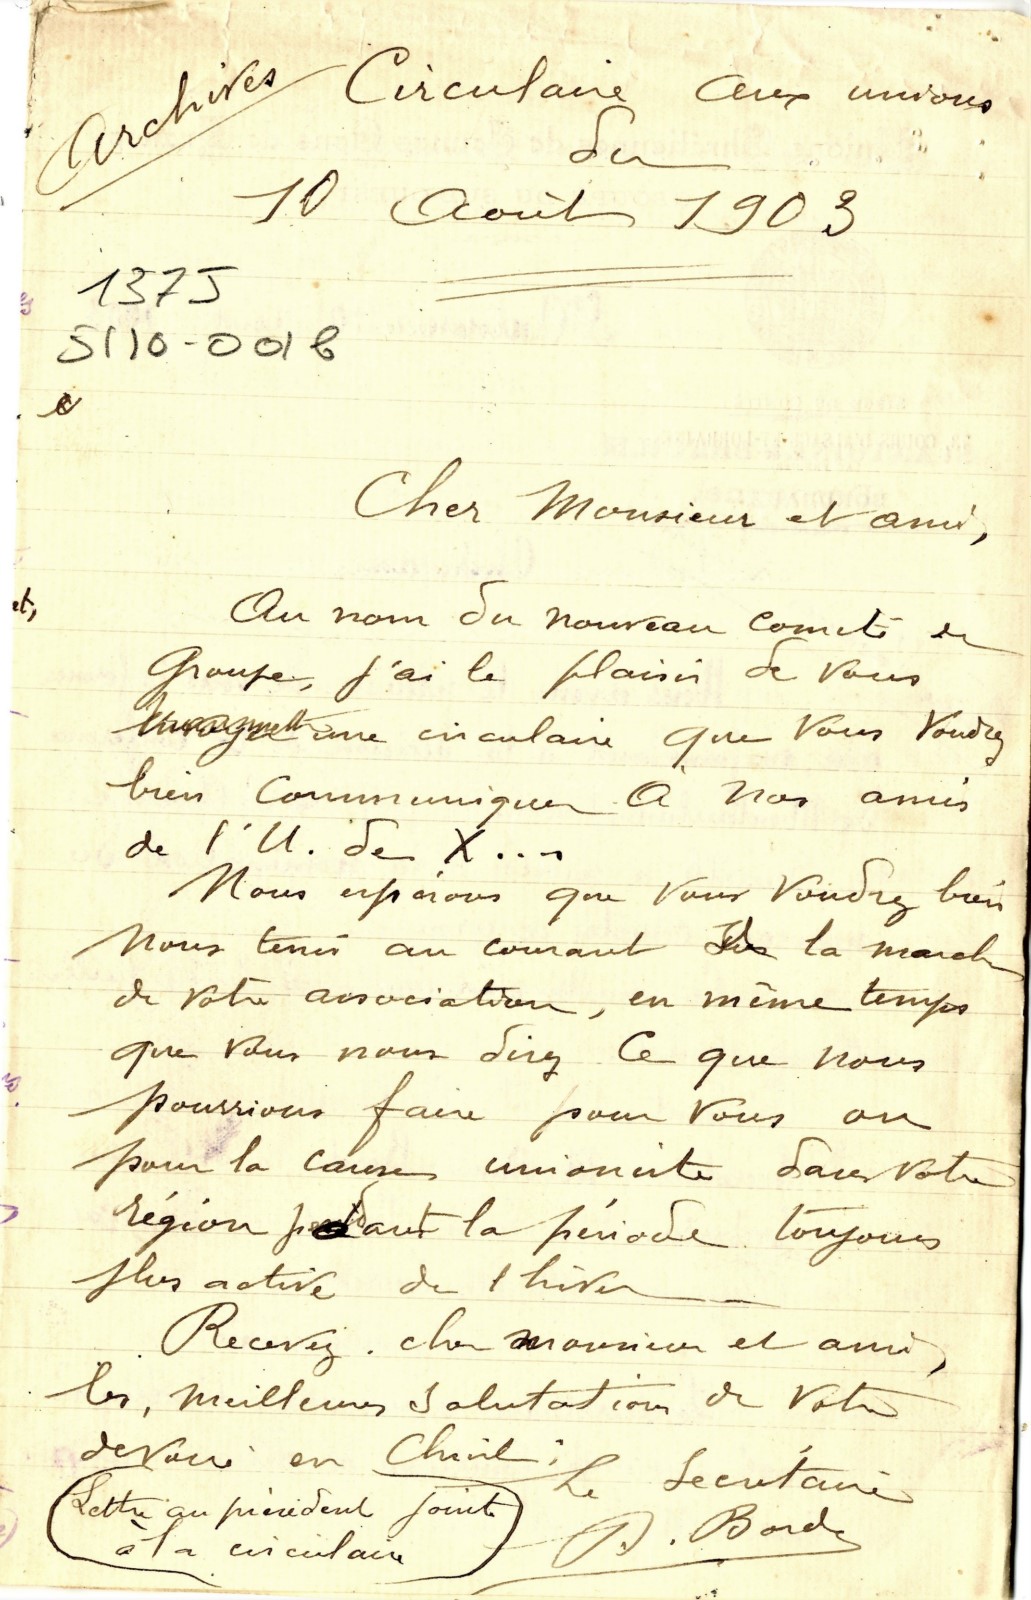 Archives
Circulaire aux unions
du
10 Août 1903
137J
5110-001b
Cher Monsieur et ami,
et,
Au nom du nouveau comité de
Groupe, j'ai le plaisir de vous
une circulaire que vous voudrez
bien communiquer à nos amis
de l'U. de X...
Nous espérons que vous voudrez bien
nous tenir au courant de la marche
de votre association, en même temps
que vous nous direz ce que nous
pourrions faire pour vous ou
pour la cause unioniste dans votre
région pendant la période toujours
plus active de l'hiver
Recevez, cher monsieur et ami,
les, meilleures salutations de votre
dévoué en Christ;
Le Secrétaire
Lettre au président jointe
à la circulaire
Borde